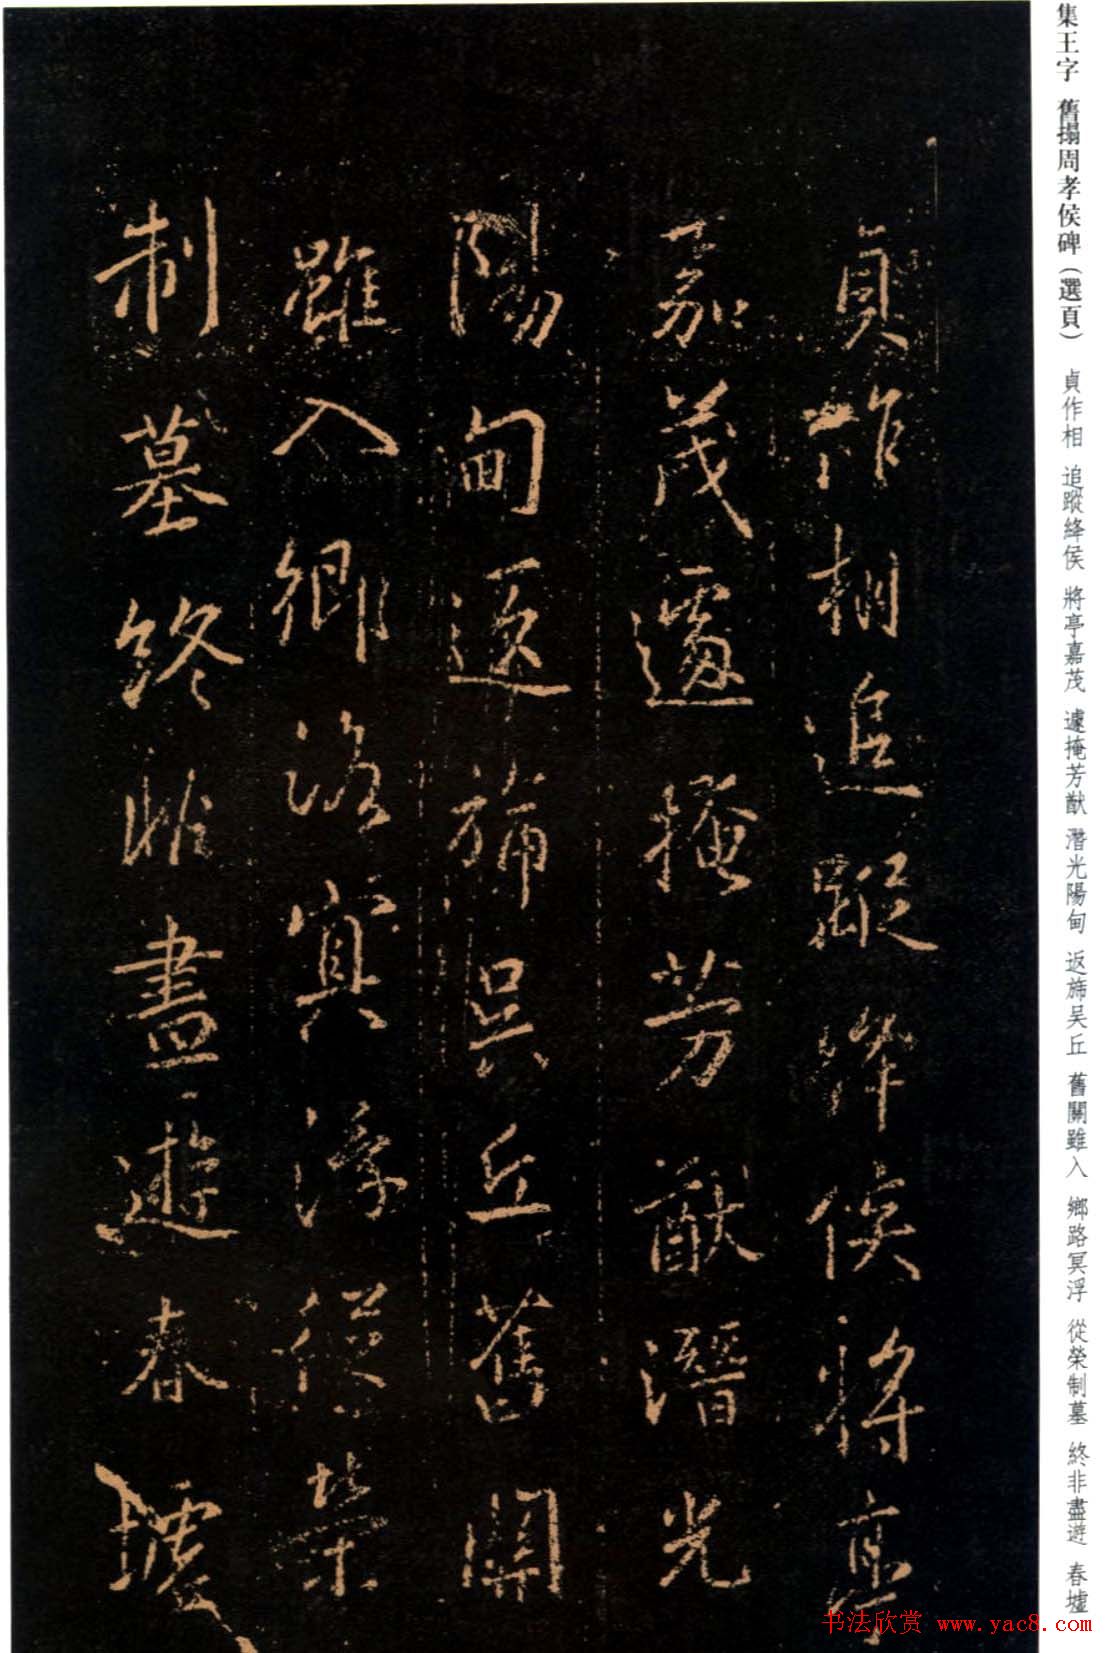 集王字 舊搨周孝侯碑（選頁） 貞作相 追蹤絳侯 將亭嘉茂 遽掩芳猷 潛光陽甸 返旆吴丘 舊關雖入 鄉路冥浮 從榮制墓 終非盡遊 春墟
貞作相追蹤絳侯將亭
嘉茂遽掩芳猷潛光
陽甸返旆吴丘舊關
雖入鄉路冥浮從榮
制墓終非盡遊春墟
书法欣赏 www.yac8.com